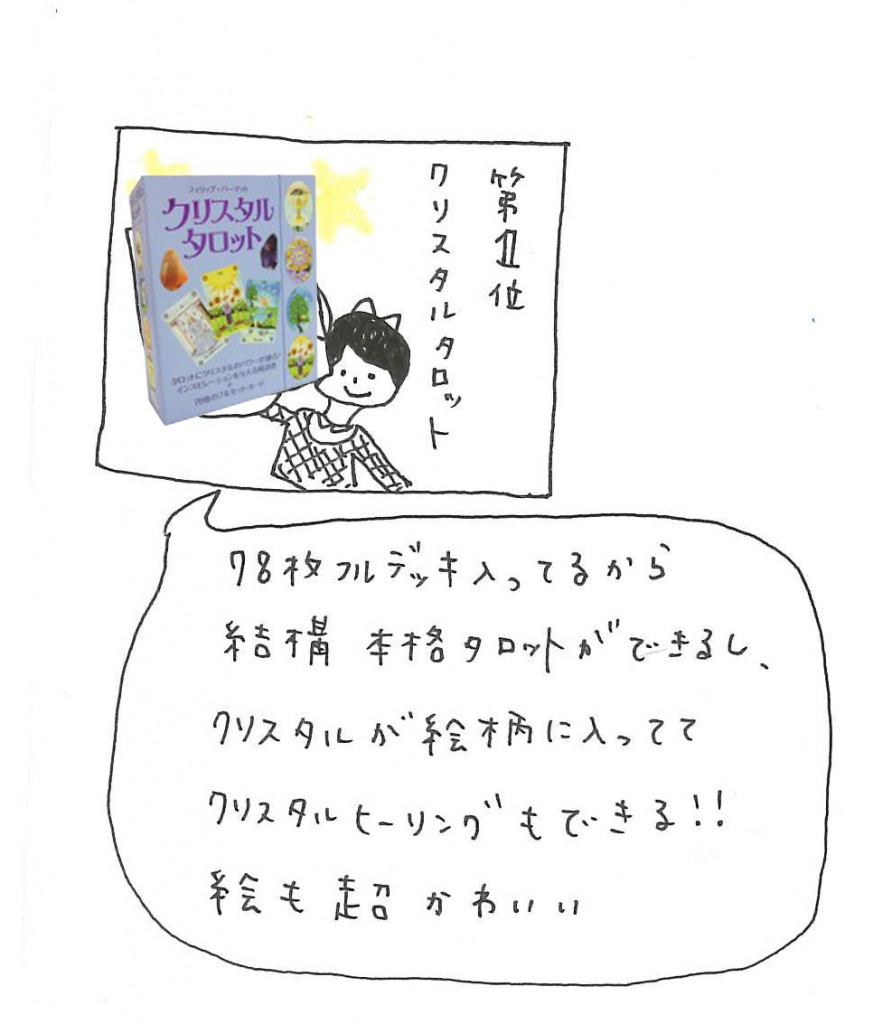 第1位
クリスタルタロット
フィリップ・パーマット
クリスタル
タロット
タロットにクリスタルのパワーが宿る!
インスピレーションを与える解説書
+
78枚のフルセット・カード
78枚フルデッキ入ってるから
結構 本格タロットができるし、
クリスタルが絵柄に入ってて
クリスタルヒーリングもできる!!
絵も超かわいい